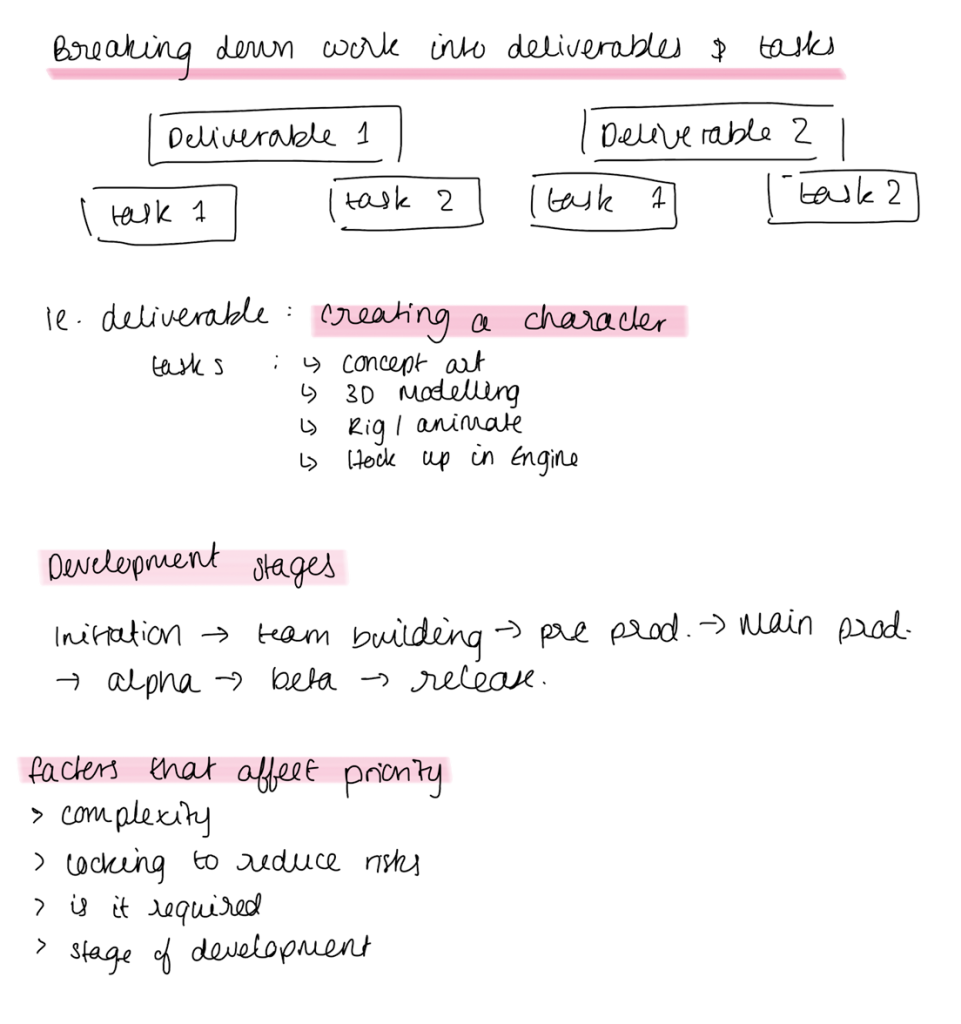 Breaking down work into deliverables & tasks
Deliverable 1 Deliverable 2
task 1 task 2 task 1 task 2
ie. deliverable : creating a character
tasks : ↳ concept art
↳ 3D Modelling
↳ Rig / animate
↳ Hook up in Engine
Development stages
Initiation → team building → pre prod. → Main prod.
→ alpha → beta → release.
factors that affect priority
> complexity
> looking to reduce risks
> is it required
> stage of development